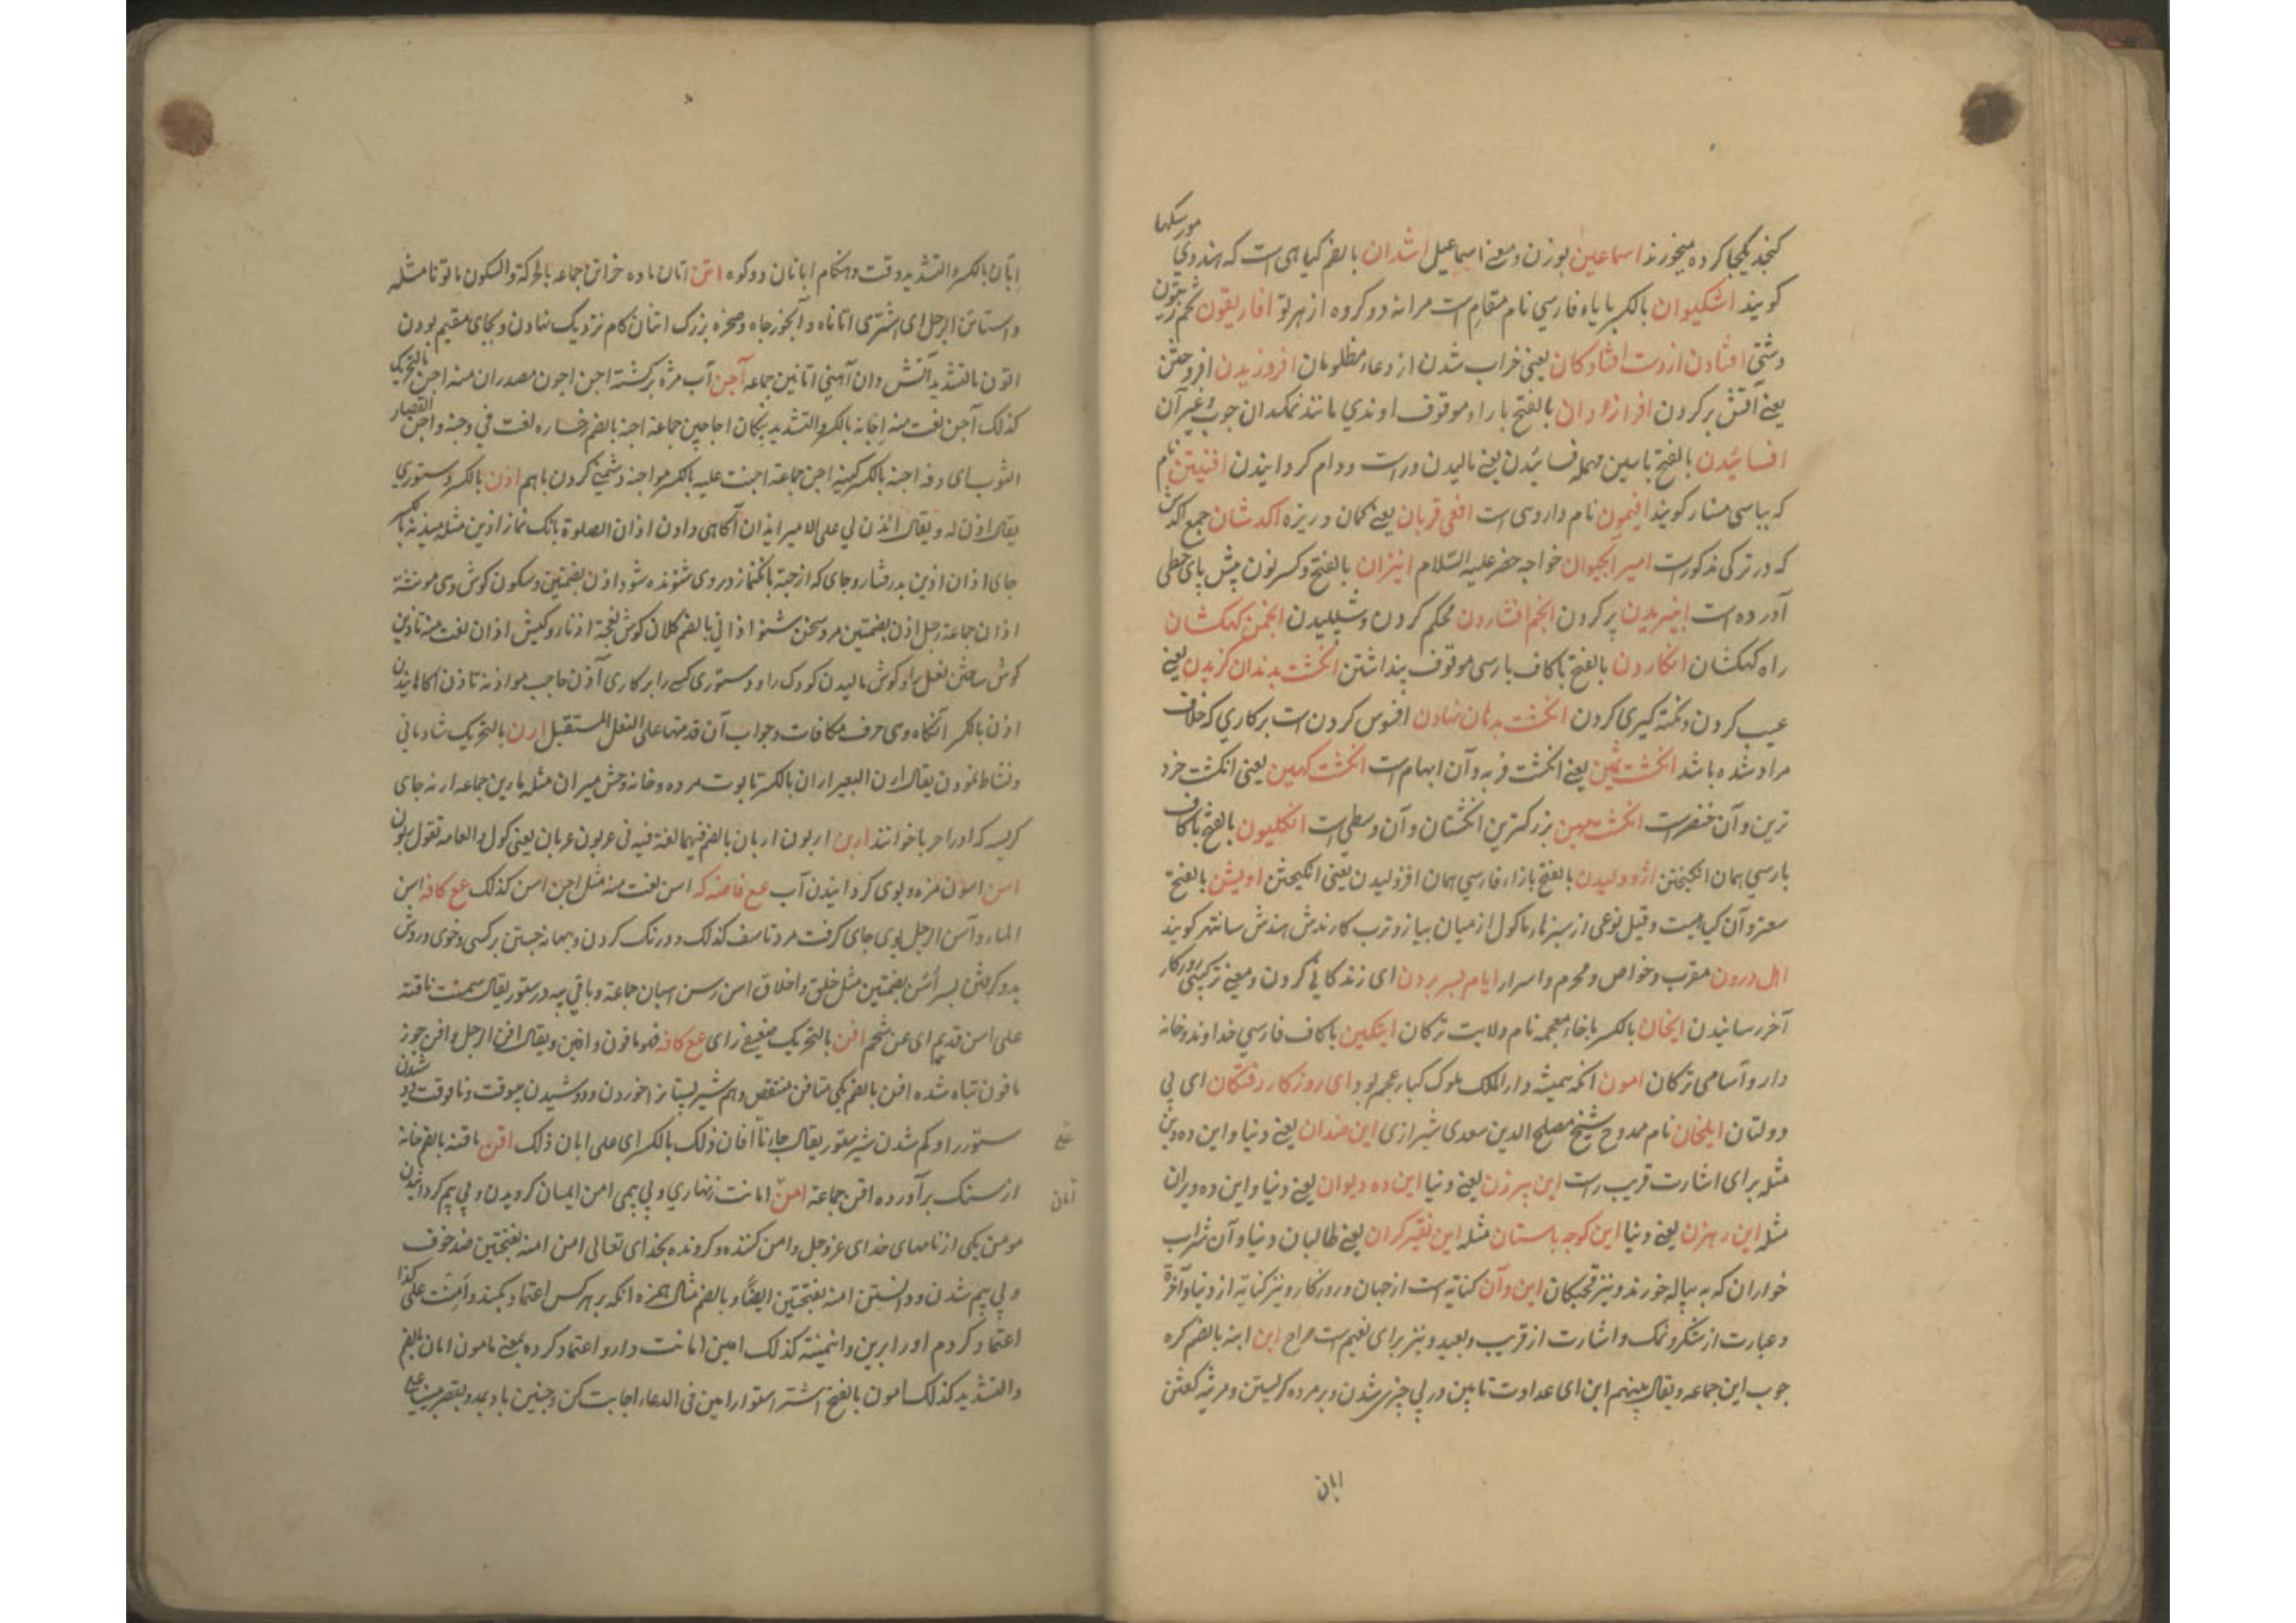 کنجد یکجا کرده میخورند اسماعین بوزن و معنی اسماعیل اشدان بالضم کیاهی است که هندوی مورسکها
کویند اشکیوان بالکسر با یاء فارسی نام مقام است مرانه دو کروه از هرلو افاریقون تخم زیتون
دشتی افتادن از دست افتادکان یعنی خراب شدن از دعاء مظلومان افروزیدن افروختن
یعنی آتش بر کردن افرازه ران بالفتح با راء موقوف اوندی مانند نمکدان جوب و غیر آن
افسائیدن بالفتح با سین مهمله فسائیدن یعنی مالیدن و راست و رام کردانیدن افتیتن نام
که بپاسی مشار کویند افیمون نام داروی است افعی قربان یعنی کمان و ریزه اکدشان جمع اکدش
که در ترکی مذکور است امیر الحیوان خواجه خضر علیه السلام انیزان بالفتح و کسر نون پیش پای خطی
آورده است انبیریدن پر کردن انجم افشاردن محکم کردن و شپلیدن انجمن کهکشان
راه کهکشان انکاردن بالفتح با کاف پارسی موقوف پنداشتن انکشت بدندان کزیدن یعنی
عیب کردن و نکته کیری کردن انکشت بدهان نهادن افسوس کردن است بر کاری که خلاف
مراد شده باشد انکشت ثمین یعنی انکشت فربه و آن ابهام است انکشت کهین یعنی انکشت خرد
ترین و آن خنصر است انکشت مهین بزرکترین انکشتان و آن وسطی است انکلیون بالفتح با کاف
پارسی همان انکیختن اژوولیدن بالفتح با زاء فارسی همان افژولیدن یعنی انکیختن اویشن بالفتح
سعتر و آن کیاهیست و قیل نوعی از سبزهاء ماکول از میان پیاز و ترب کارندش هندش سانتهر کویند
اهل درون مقرب و خواص و محرم و اسرار ایام بسر بردن ای زندکانی کردن و معنی ترکیبی روزکار
آخر رسانیدن ایخان بالکسر با خاء معجمه نام ولایت ترکان ایتکین با کاف فارسی خداوند و خانه
دار و آسامی ترکان امون آنکه همیشه دار الملک ملوک کبار عجم بود ای روزکار رفتکان ای بی
دولتان ایلخان نام ممدوح شیخ مصلح الدین سعدی شیرازی این ضدان یعنی دنیا و این ده وین
مثله برای اشارت قریب راست این پیرزن یعنی دنیا این ده دیوان یعنی دنیا و این ده ویران
مثله این رهزن یعنی دنیا این کوجه باستان مثله این نقیر کران یعنی طالبان دنیا و آن شراب
خواران که به پیاله خورند و نیز قحبکان این و آن کنایه است از جهان و روزکار و نیز کنایة از دنیا و آخرة
و عبارت از شکر و نمک و اشارت از قریب و بعید و نیز برای تعمیم است صراح ابن ابنه بالضم کره
جوب ابن جماعه و یقال بینهم ابن ای عداوت تابین در پی چیزی شدن و بر مرده کریستن و مرثیه کفتن
ابان
اِبّان بالکسر و التشدید وقت و هنکام ابانان دو کوه اتن اتان ماده خر اتن جماعه بالحرکة و السکون ماتونا مثله
و استاتن الرجل ای اشتری اتانا و آبخور جاه و صخره بزرک اتنان کام نزدیک نهادن و بجای مقیم بودن
اتون بالتشدید آتش دان آهنی اتاتین جماعه آجن آب مزه برکشته اجن اجون مصدران منه اجن بالتحریک
کذلک آجن لغت منه اِجانه بالکسر و التشدید پنکان اجاجین جماعة اجنه بالضم رخساره لغت فی وجنه و اجن القصار
الثوب ای دقه اجنه بالکسر کینه اجن جماعة اجنت علیه بالکسر مواجنه دشمنی کردن باهم اذن بالکسر دستوری
یقال اذن له و یقال ائذن لی علی الامیر ایذان آکاهی دادن اذان الصلوة بانک نماز اذین مثله میذنه بالکسر
جای اذان اذین پدرفتار و جای که از جبة بانکنماز در وی شنونده شود اذن بضمتین و سکون کوش و هی مونثة
اذان جماعة رجل اذن بضمتین مرد سخن شنو اذانی بالضم کلان کوش نعجة اذناء و کبش اذان لغت منه تاذین
کوش ساختن نعل را و کوش مالیدن کودک را و دستوری کسی را بر کاری آذن حاجب مواذنه تاذن آکاهانیدن
اذن بالکسر آنکاه و هی حرف مکافات و جواب آن قدمتها علی الفعل المستقبل ارن بالتحریک شادمانی
و نشاط نمودن یقال ارن البعیر اران بالکسر تابوت مرده و خانه وحش میران مثله مارین جماعه ارنه جای
کریسه که او را حربا خوانند اربن اربون اربان بالضم فیهما لغة فیه فی عربون عربان یعنی کول و العامه تقول ربون
اسن اسون مزه و بوی کردانیدن آب عع فاضنه که اسن لغت منه مثل اجن اسن کذلک عع کافه اسن
الماء و آسن الرجل بوی جای کرفت مرد تاسف کذلک و درنک کردن و بهانه جستن بر کسی و خوی و روش
پدر کرفتن پسر اُسُن بضمتین مثل خلق و اخلاق اسن رسن اسان جماعة و باقی پیه در ستور یقال سمنت ناقته
علی اسن قدیم ای عن شحم افن بالتحریک ضعیف رای عع کافه فهو مافون و افین و یقال افن الرجل و افن جوز
مافون تباه شده افن بالضم یکی متافن متنقص و هم شیر پستان را خوردن و دوشیدن بیوقت و ناوقت دو شدن
ستور را و کم شدن شیر ستور یقال جاءنا افان ذلک بالکسر ای علی ابان ذلک اقن ماقنه بالضم خانه
از سنک برآورده اقن جماعة امن امانت زنهاری و بی بیمی امن ایمان کرویدن و بی بیم کردانیدن
مومن یکی از نامهای خدای عز و جل و امن کننده و کرونده بخدای تعالی امن امنه بفتحتین ضد خوف
و بی بیم شدن و دانستن امنه بفتحتین ایضاً و بالضم مثال همزه آنکه بر هر کس اعتماد بکند و اَمِنت علی کذا
اعتماد کردم او را برین و ایتمنته کذلک امین امانت دار و اعتماد کرده بمعنی مامون امان بالضم
و التشدید کذلک امون بالفتح اشتر استوار امین فی الدعاء اجابت کن و جنین باد بمد و بقصر
امان